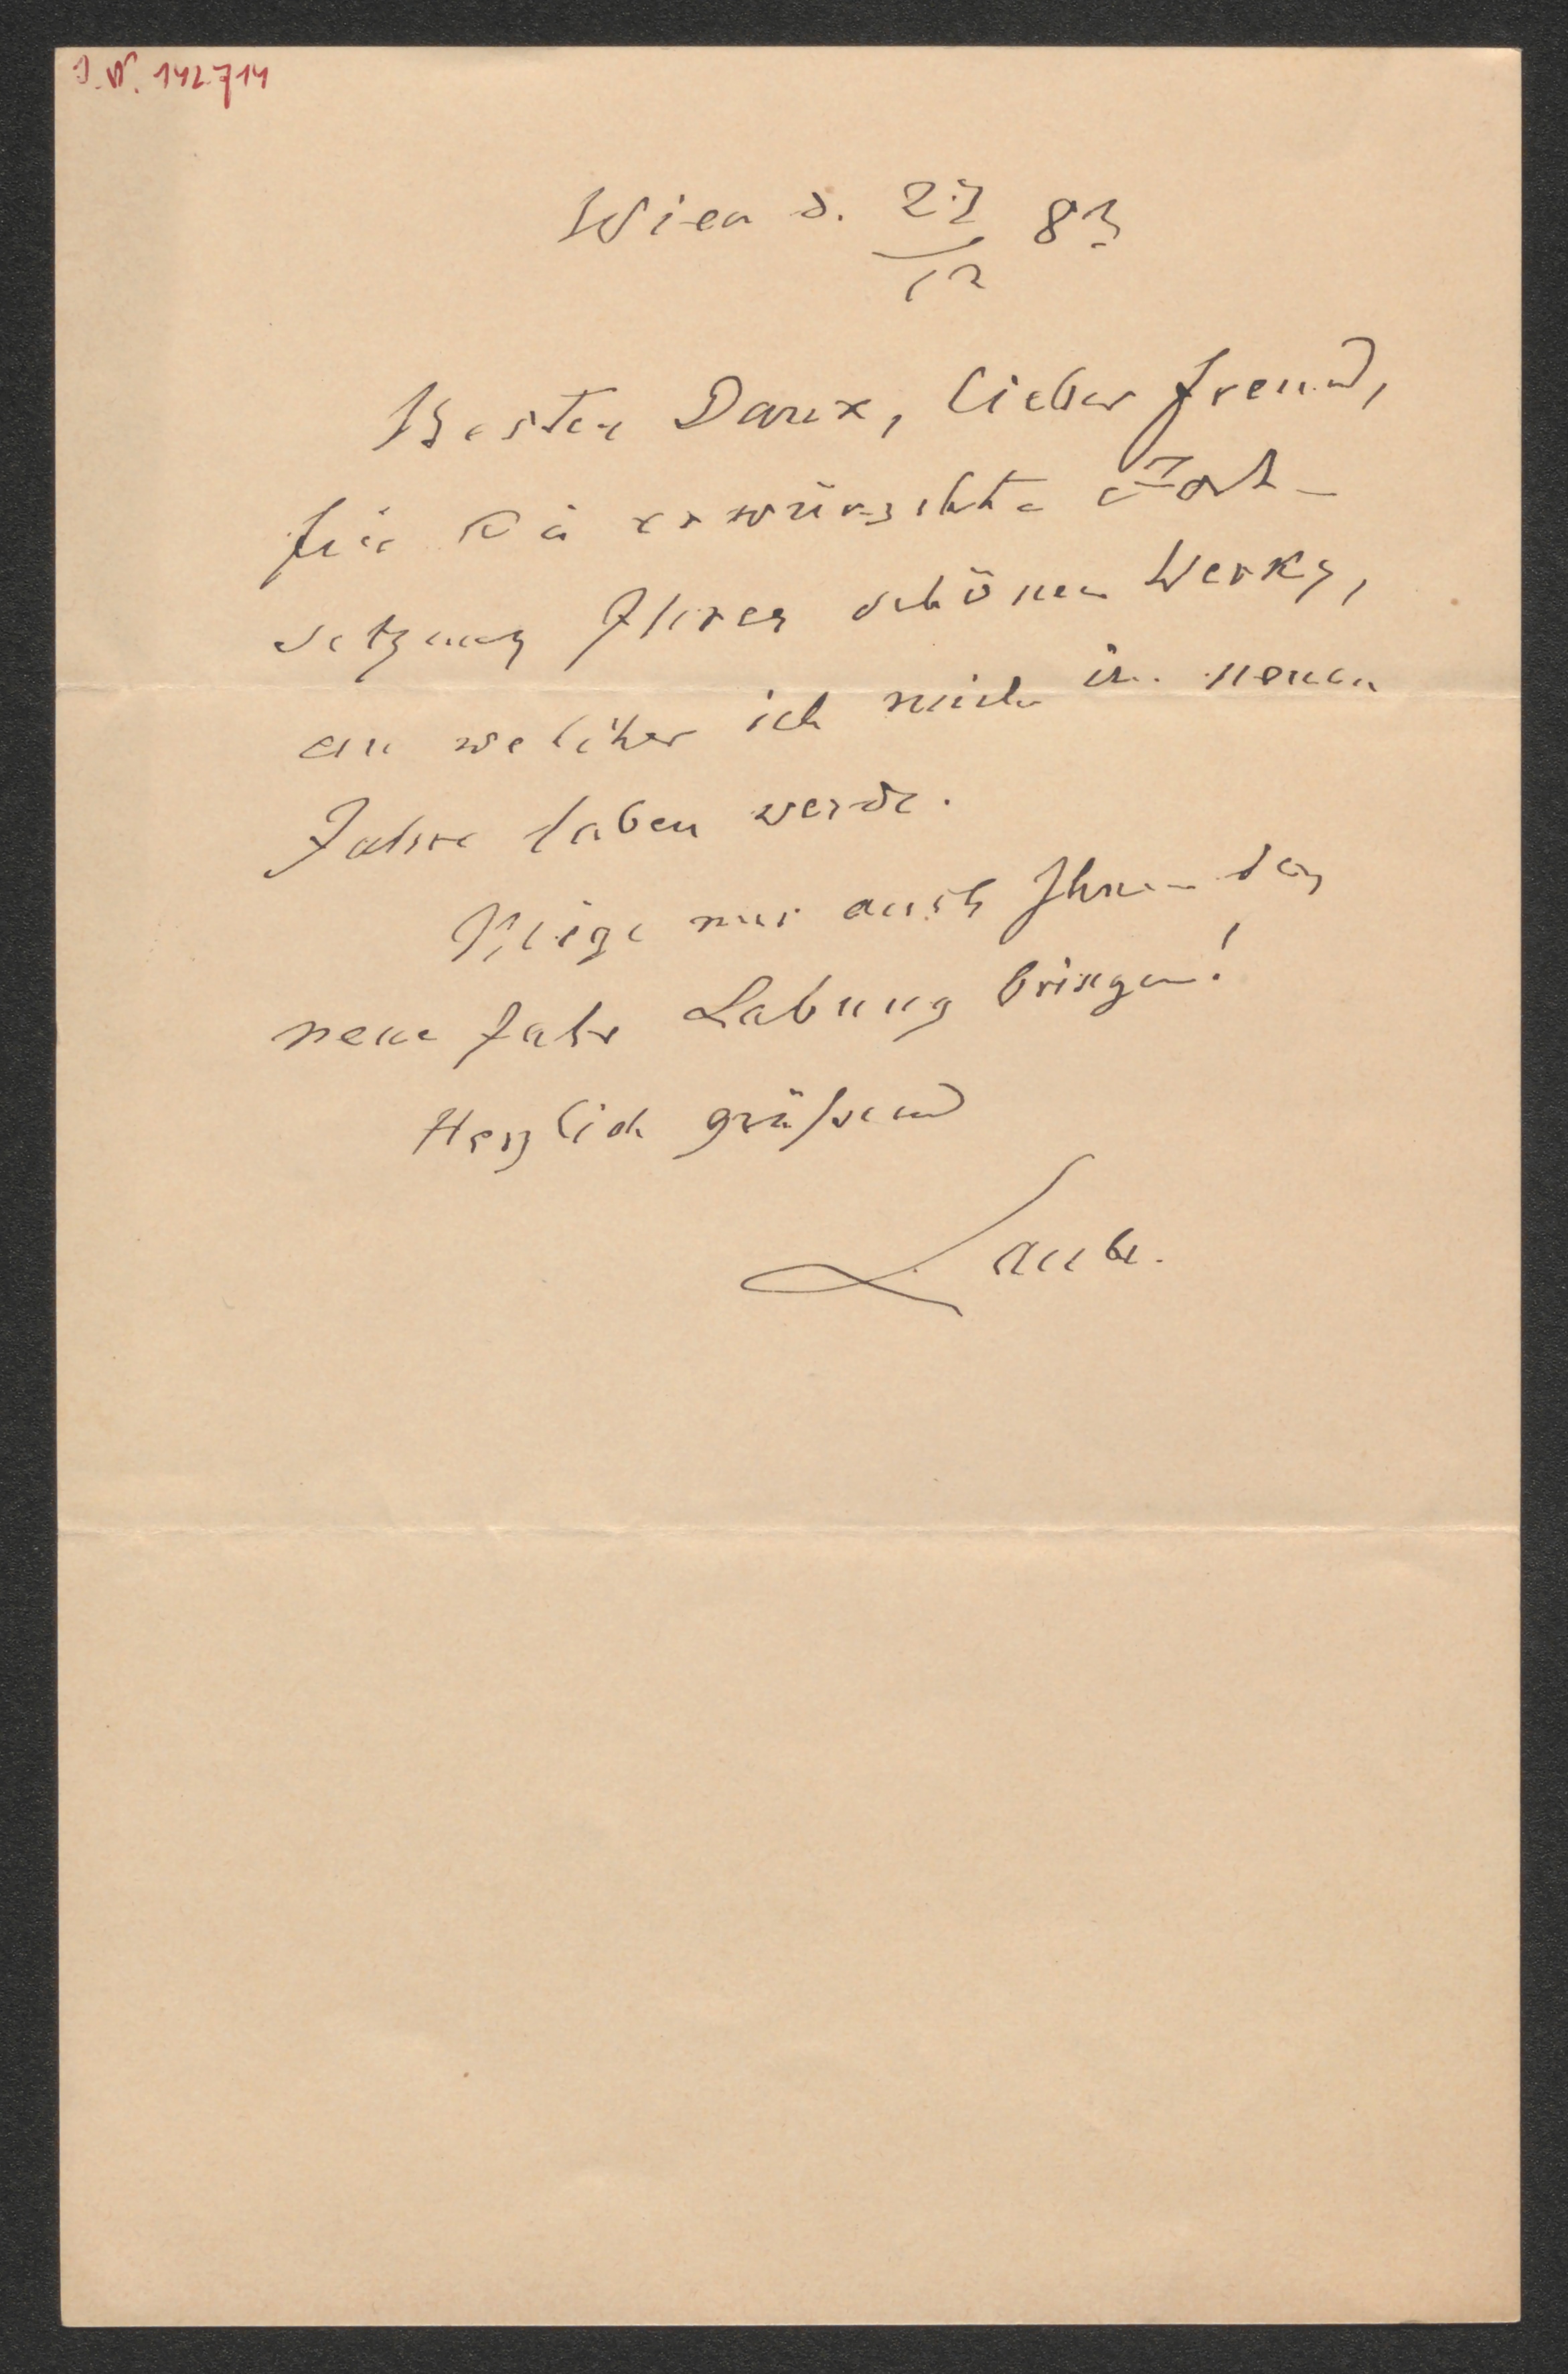 I. N. 142.714
Wien d. 27/12 83
Besten Dank, lieber Freund,
für die erwünschte Fort-
setzung Ihres schönen Werks,
an welcher ich mich im neuen
Jahre laben werde.
Möge nur auch Ihnen das
neue Jahr Labung bringen!
Herzlich grüßend
Laube.